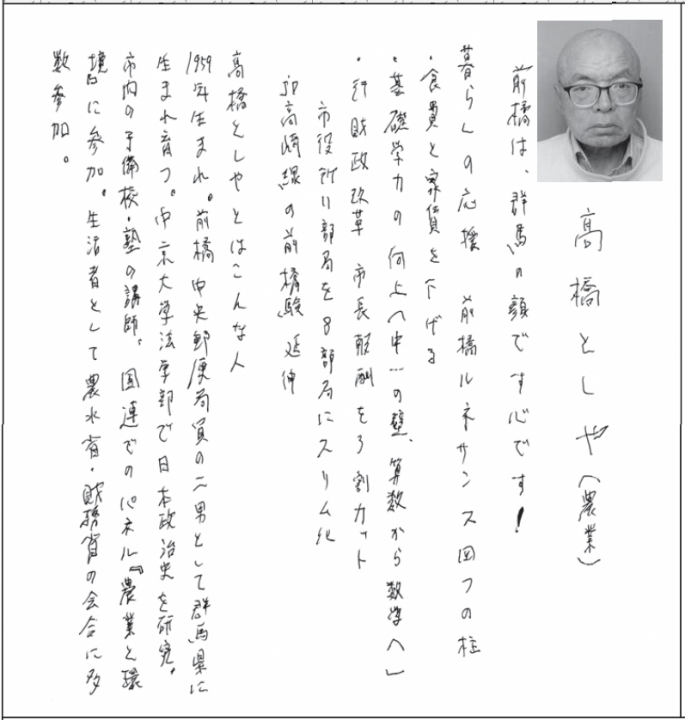 高橋としや（農業）
前橋は、群馬の顔です心です！
暮らしの応援 前橋ルネサンス四つの柱
・食費と家賃を下げる
・基礎学力の向上へ中一の壁、算数から数学へ」
・行財政改革 市長報酬を3割カット
市役所11部局を8部局にスリム化
・JR高崎線の前橋駅延伸
高橋としやとはこんな人
1959年生まれ。前橋中央郵便局員の二男として群馬県に
生まれ育つ。中京大学法学部で日本政治史を研究。
市内の予備校・塾の講師。国連でのパネル『農業と環
境』に参加。生活者として農水省・財務省の会合に多
数参加。